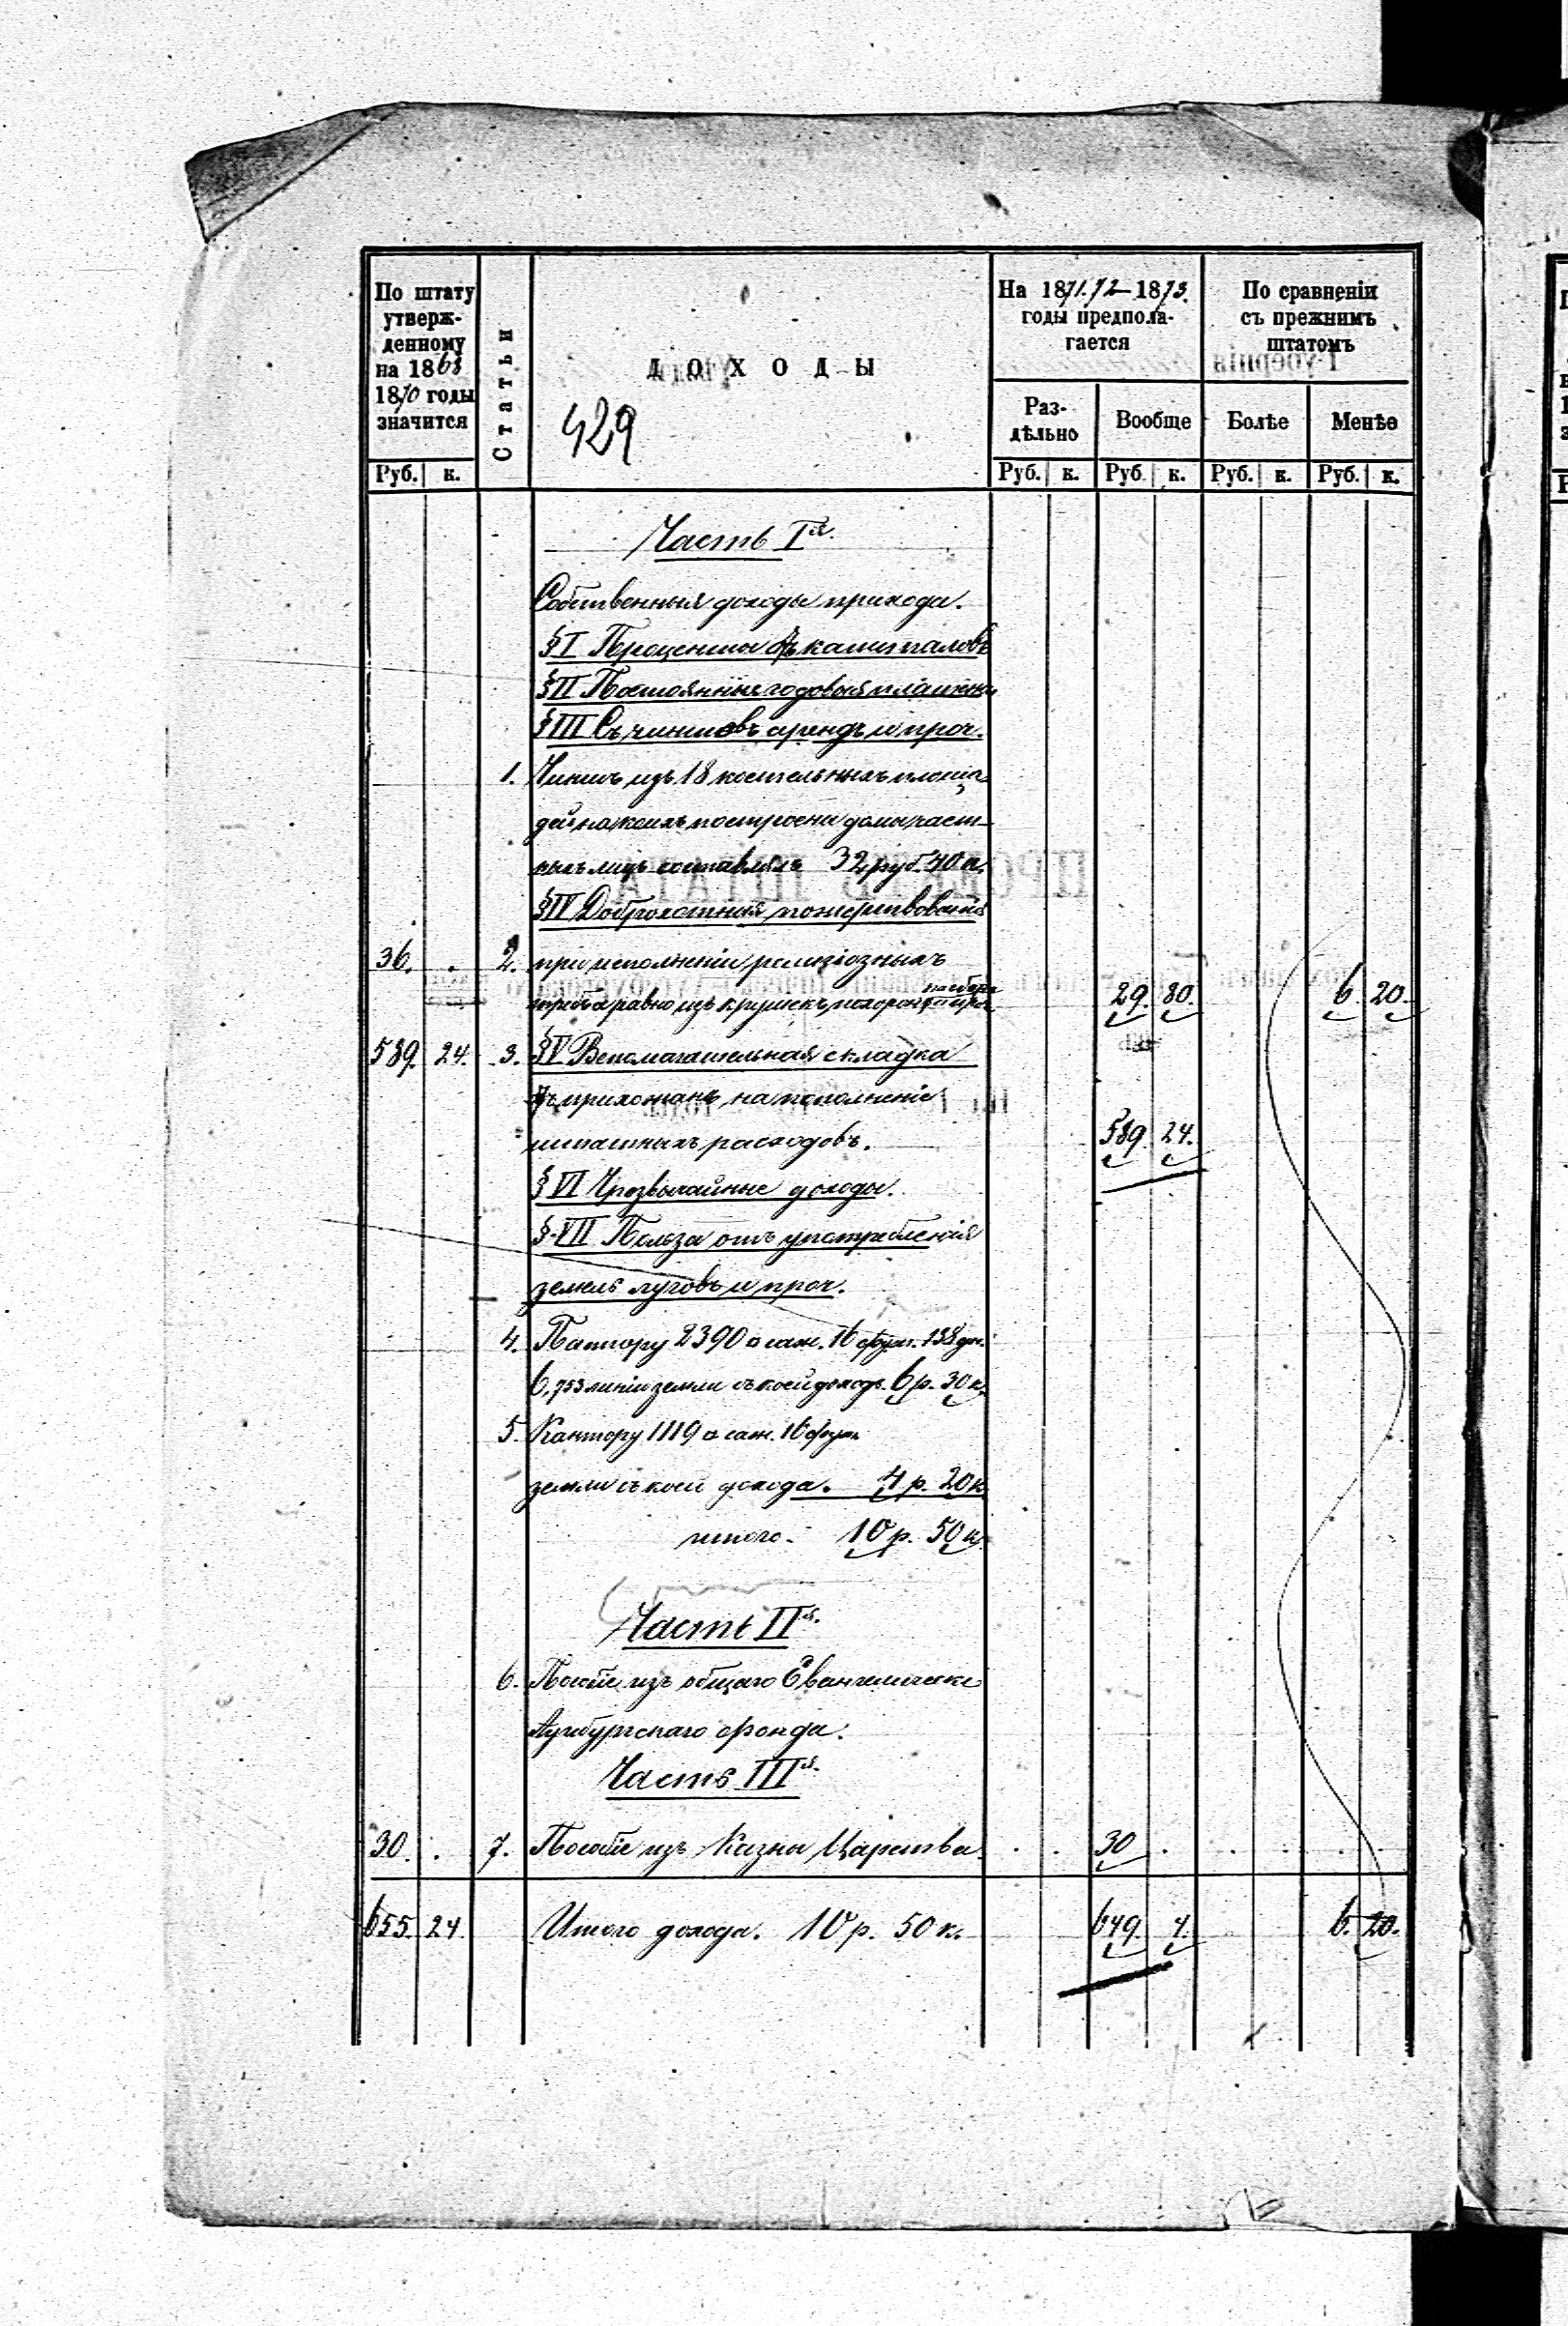 По штату утвержденному на 1868 1870 годы значится
Статьи
ДОХОДЫ
429
На 1871.72–1873. годы предполагается
По сравненіи съ прежнимъ штатомъ
Раздѣльно
Вообще
Болѣе
Менѣе
Руб. к. Руб. к. Руб. к. Руб. к. Руб. к.
Часть Iя.
Собственныя доходы прихода.
§ I Проценты отъ капиталовъ
§ II Постоянныя годовыя платежи
§ III Съ чиншовъ арендъ и проч.
1. Чиншъ изъ 18 костельныхъ площа
дей на коихъ построены домы част–
ныхъ лицъ составлялъ 32 руб. 40 к.
§ IV Доброхотныя пожертвованія
36. . 2. при исполненіи религіозныхъ
на сборъ
требъ а равно изъ кружекъ, похоронъ и проч. 29. 80. 6. 20.
589. 24. 3. § V Вспомагательная складка
отъ прихожанъ на пополненіе
штатныхъ расходовъ. 589. 24.
§ VI Чрезвычайные доходы.
§ VII Польза отъ употребленія
земель луговъ и проч.
4. Пастору 2390 □ саж. 16 фут. 138 дм.
6,753 линіи земли съ коей доходъ. 6 р. 30 к.
5. Кантору 1119 □ саж. 16 фут.
земли съ коей дохода. 4 р. 20 к.
итого. 10 р. 50 к.
Часть IIя.
6. Пособіе изъ общаго Евангелическо
Аугсбургскаго фонда.
Часть IIIя.
30. . 7. Пособіе изъ Казны Царства. . . 30 . . . . .
655. 24. Итого дохода. 10 р. 50 к. 649. 4. 6. 20.